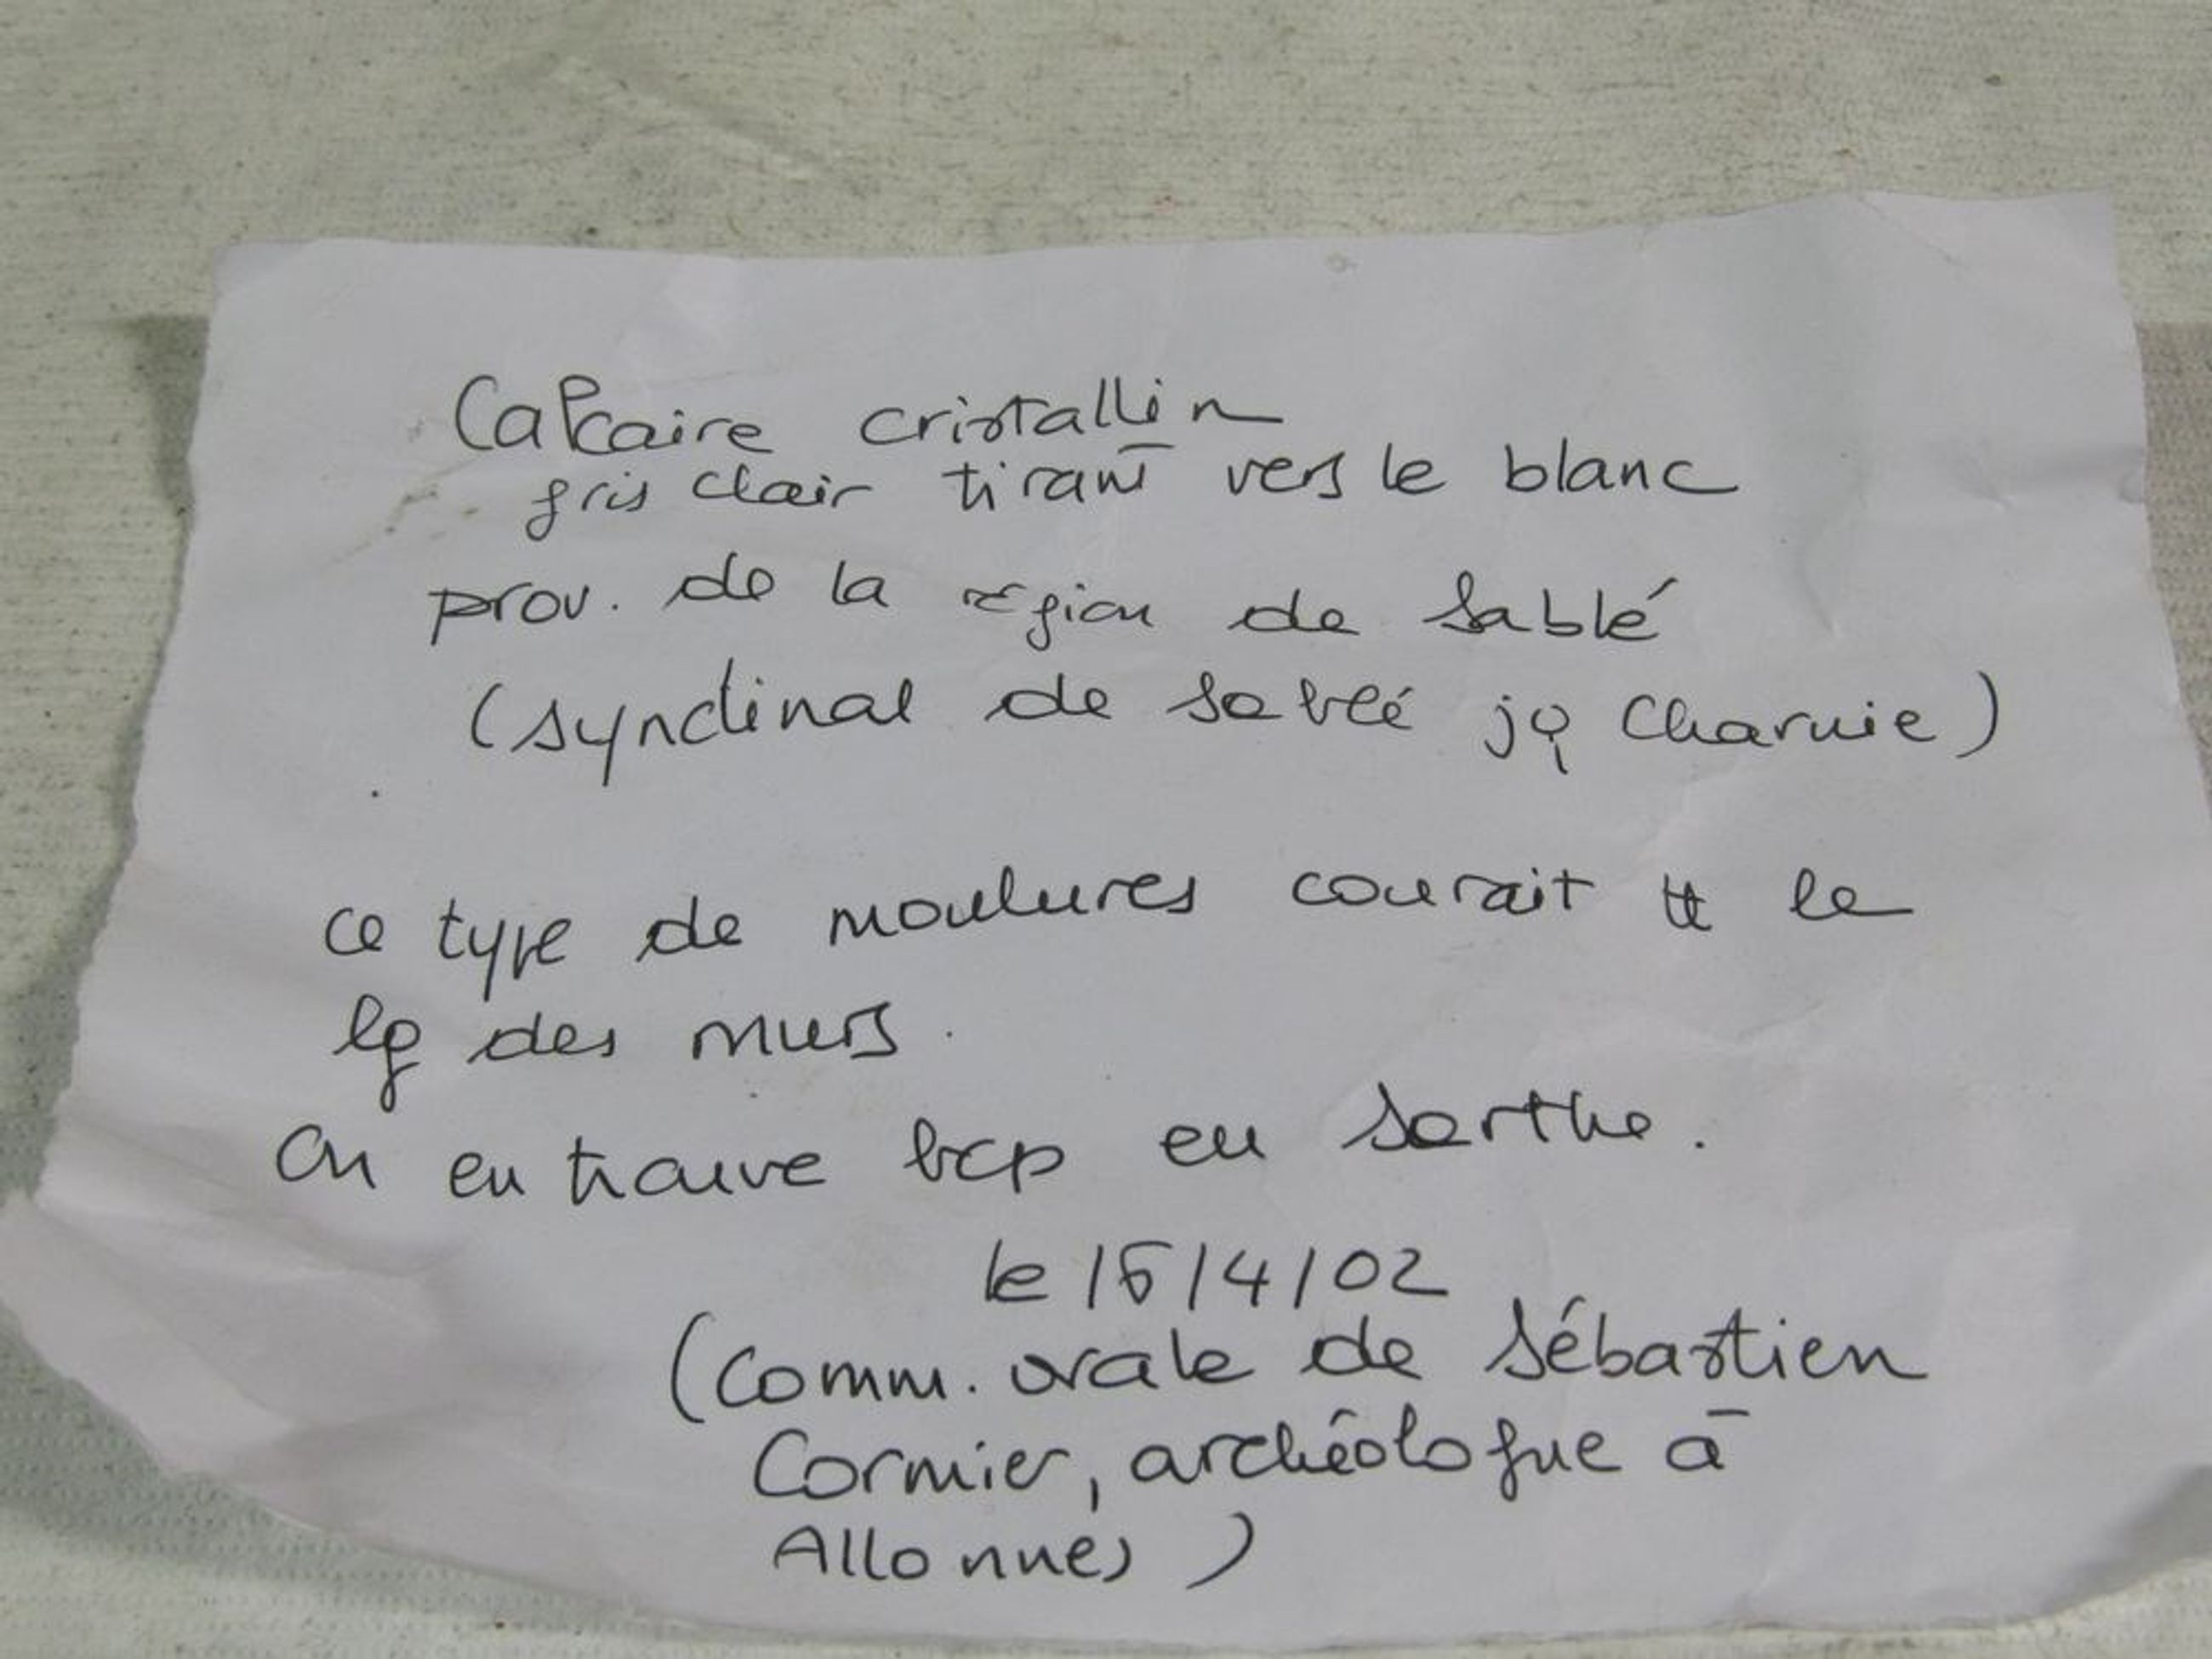 Calcaire cristallin
gris clair tirant vers le blanc
prov. de la région de Sablé
(synclinal de Sablé jq Charnie)
ce type de moulures courait tt le
lg des murs.
On en trouve bcp en Sarthe.
le 15/4/02
(Comm. orale de Sébastien
Cormier, archéologue à
Allonnes)